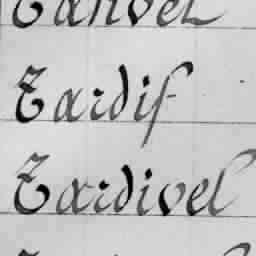 Tardif
Tardivel